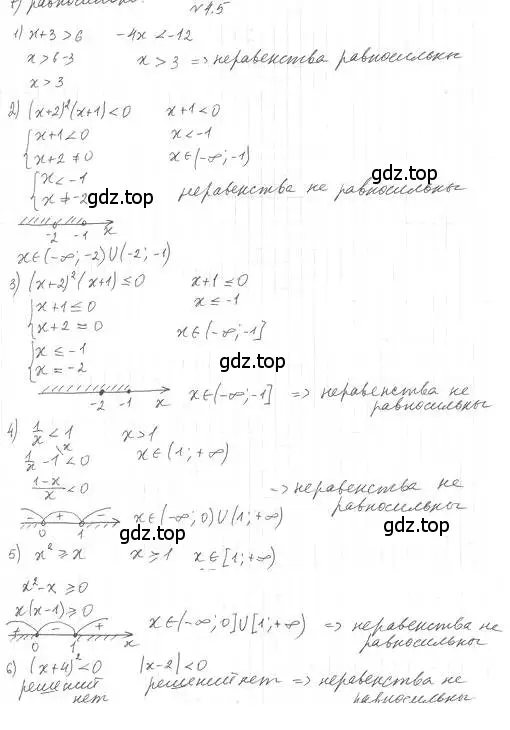 1) равносильно. N 4.5
1) x+3>6 -4x<-12
x>6-3 x>3 => неравенства равносильны
x>3
2) (x+2)²(x+1)<0 x+1<0
{x+1<0 x<-1
{x+2≠0 x∈(-∞;-1)
{x<-1
{x≠-2 неравенства не равносильны
gdz.top gdz.top
-2 -1 x
x∈(-∞;-2)∪(-2;-1)
3) (x+2)²(x+1)≤0 x+1≤0
{x+1≤0 x≤-1
{x+2=0 x∈(-∞;-1]
{x≤-1
{x=-2 gdz.top
-2 -1 x x∈(-∞;-1] => неравенства не
равносильны
4) 1/x<1 x>1
1/x-1\x<0 x∈(1;+∞)
(1-x)/x<0 => неравенства не
равносильны
gdz.top
- + - 0 1 x∈(-∞;0)∪(1;+∞)
gdz.top gdz.top
5) x²≥x x≥1 x∈[1;+∞)
x²-x≥0
x(x-1)≥0
+ - + 0 1 x x∈(-∞;0]∪[1;+∞) => неравенства не
равносильны
6) (x+4)²<0 |x-2|<0
решений нет решений нет => неравенства не
равносильны